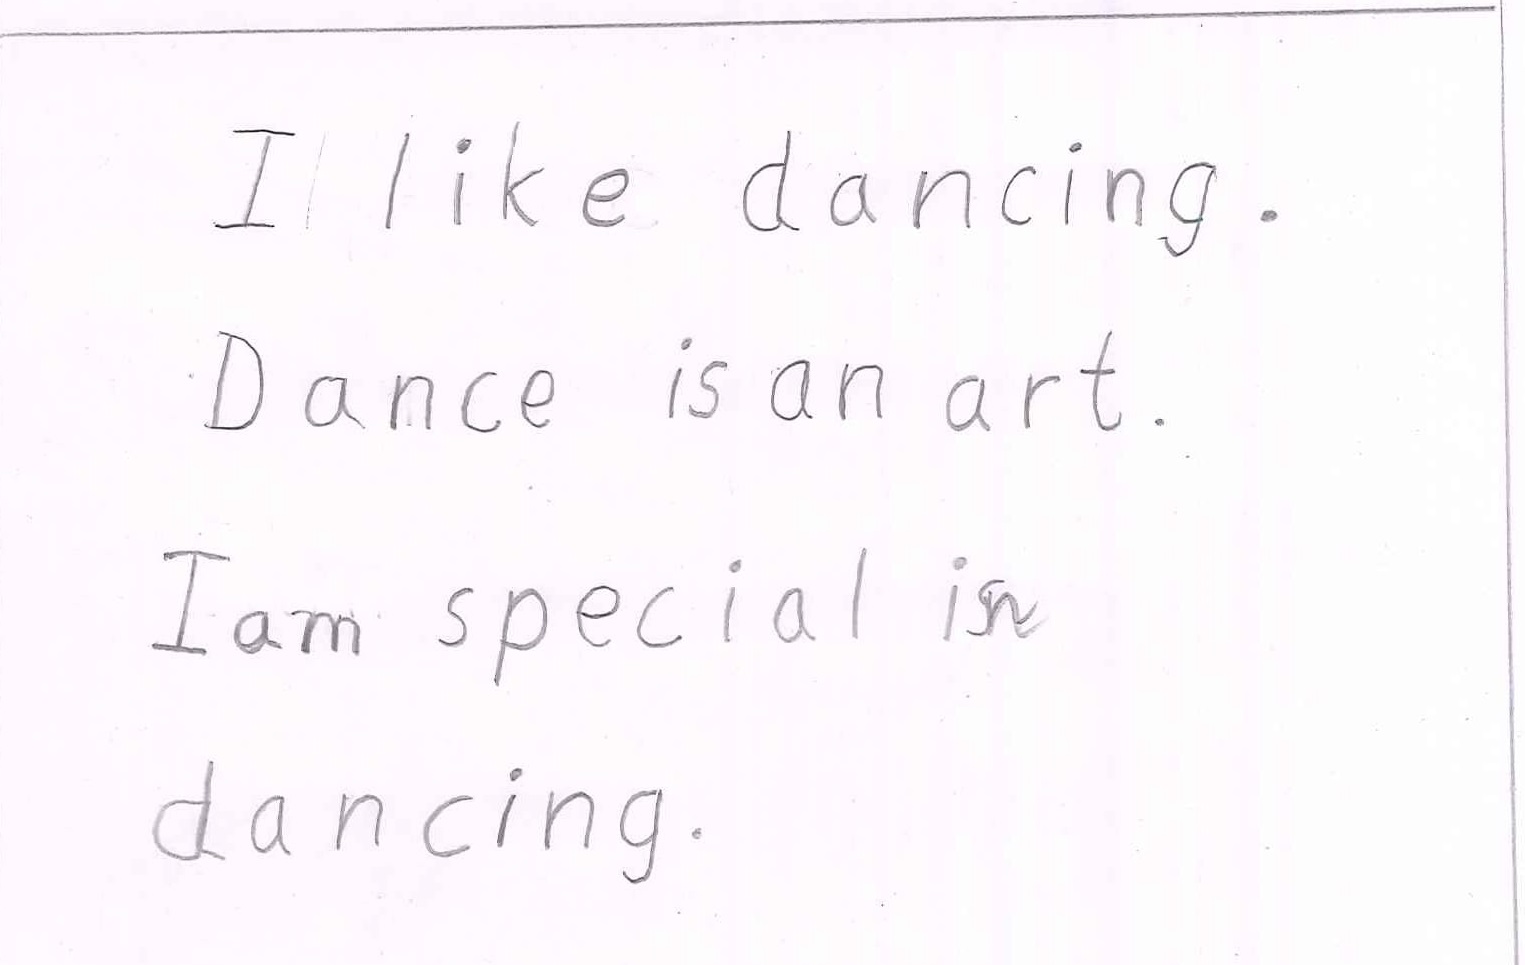 I like dancing.
Dance is an art.
I am special in
dancing.